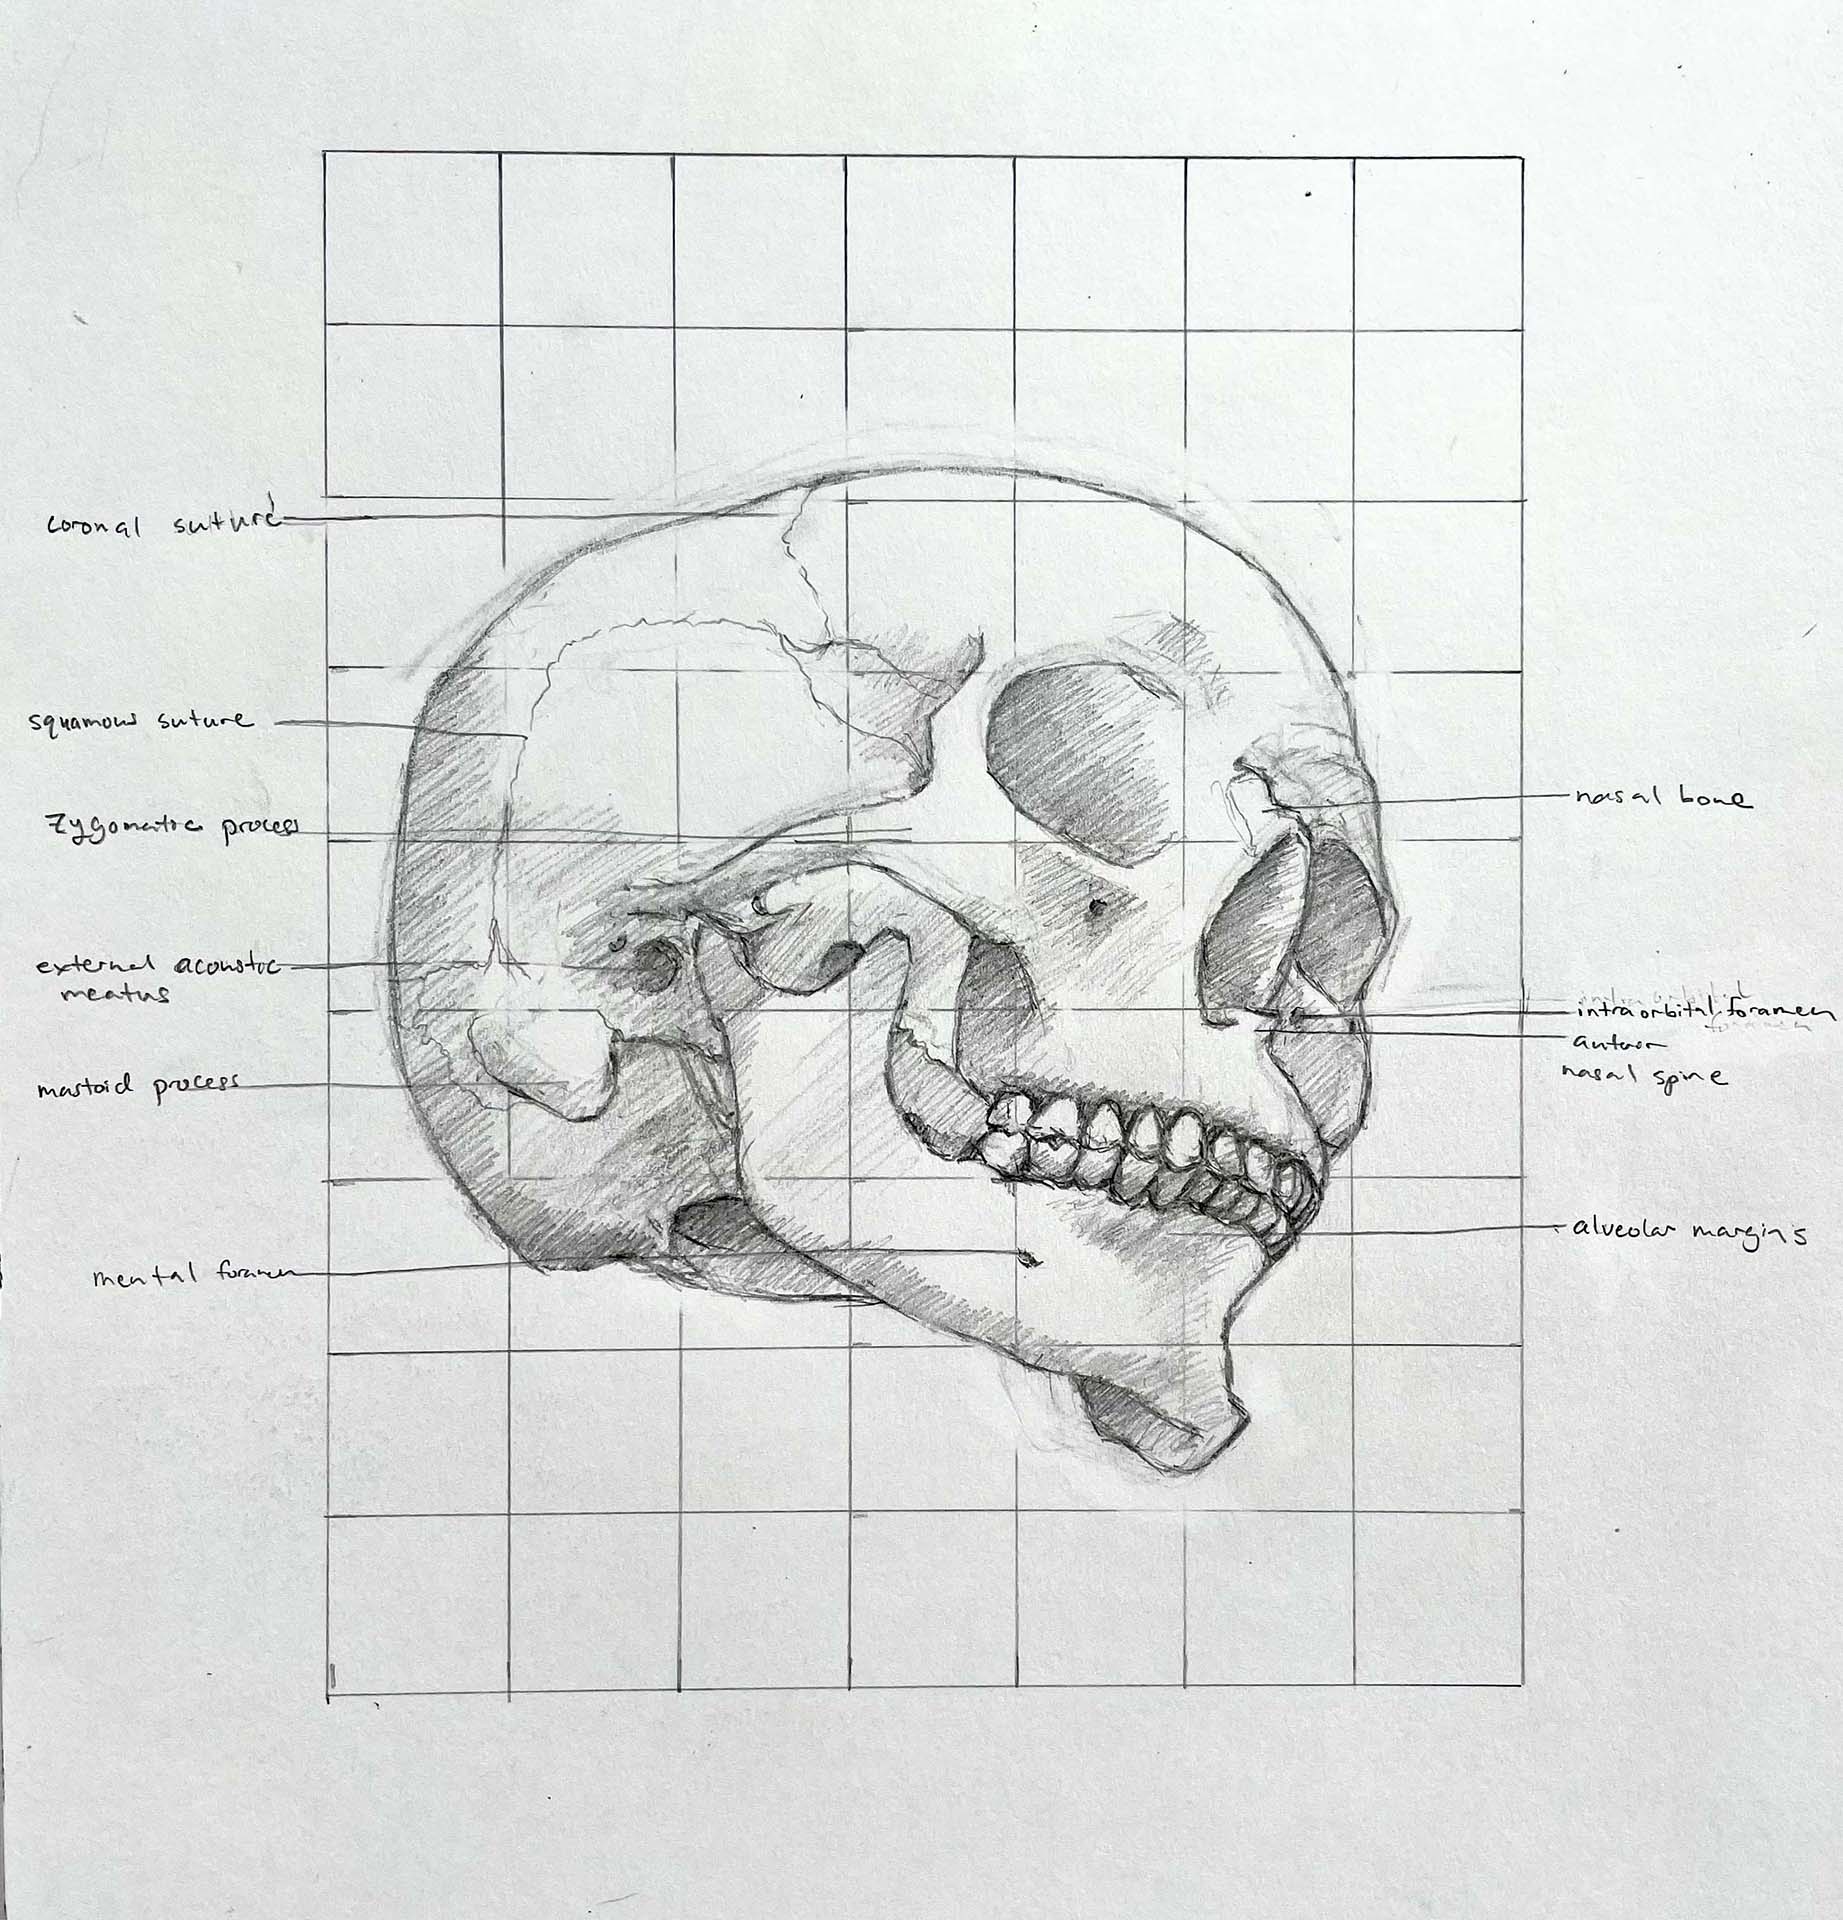 coronal suture
squamous suture
Zygomatic process
external acoustic
meatus
mastoid process
mental foramen
nasal bone
intraorbital foramen
nasal spine
alveolar margins